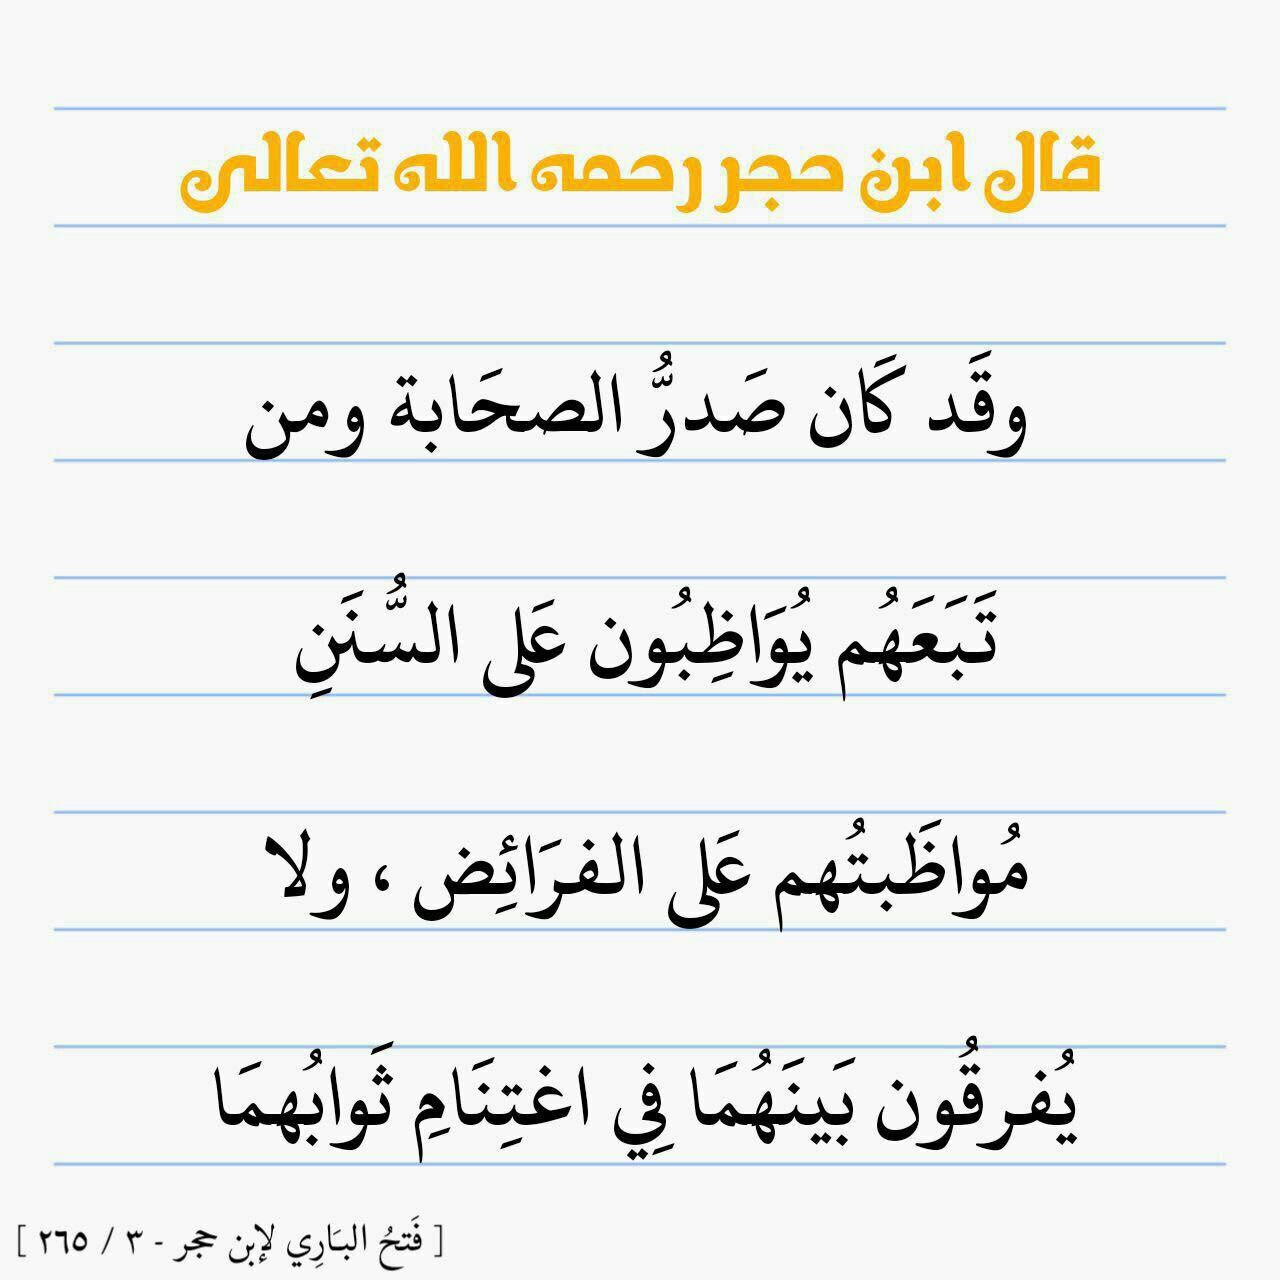 قال ابن حجر رحمه الله تعالى
وقَد كَان صَدرُّ الصحَابة ومن
تَبَعَهُم يُوَاظِبُون عَلى السُّنَنِ
مُواظَبتُهم عَلى الفرَائِض ، ولا
يُفرقُون بَينَهُمَا فِي اغتِنَامِ ثَوابُهمَا
[ فَتحُ البَارِي لإبن حجر - ٣ / ٢٦٥ ]